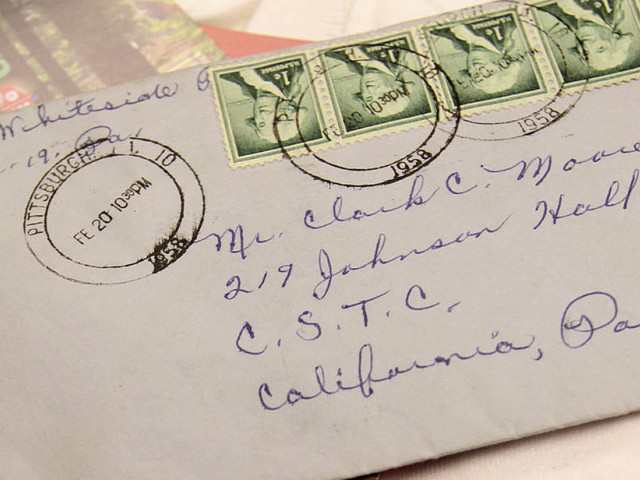 Whiteside
19, Pa
PITTSBURGH 10
FE 20 1030PM
1958
1¢
1¢
1¢
1¢
FE 20 1030PM
1958
1958
Mr. Clark C. Moore
219 Johnson Hall
C. S. T. C.
California, Pa